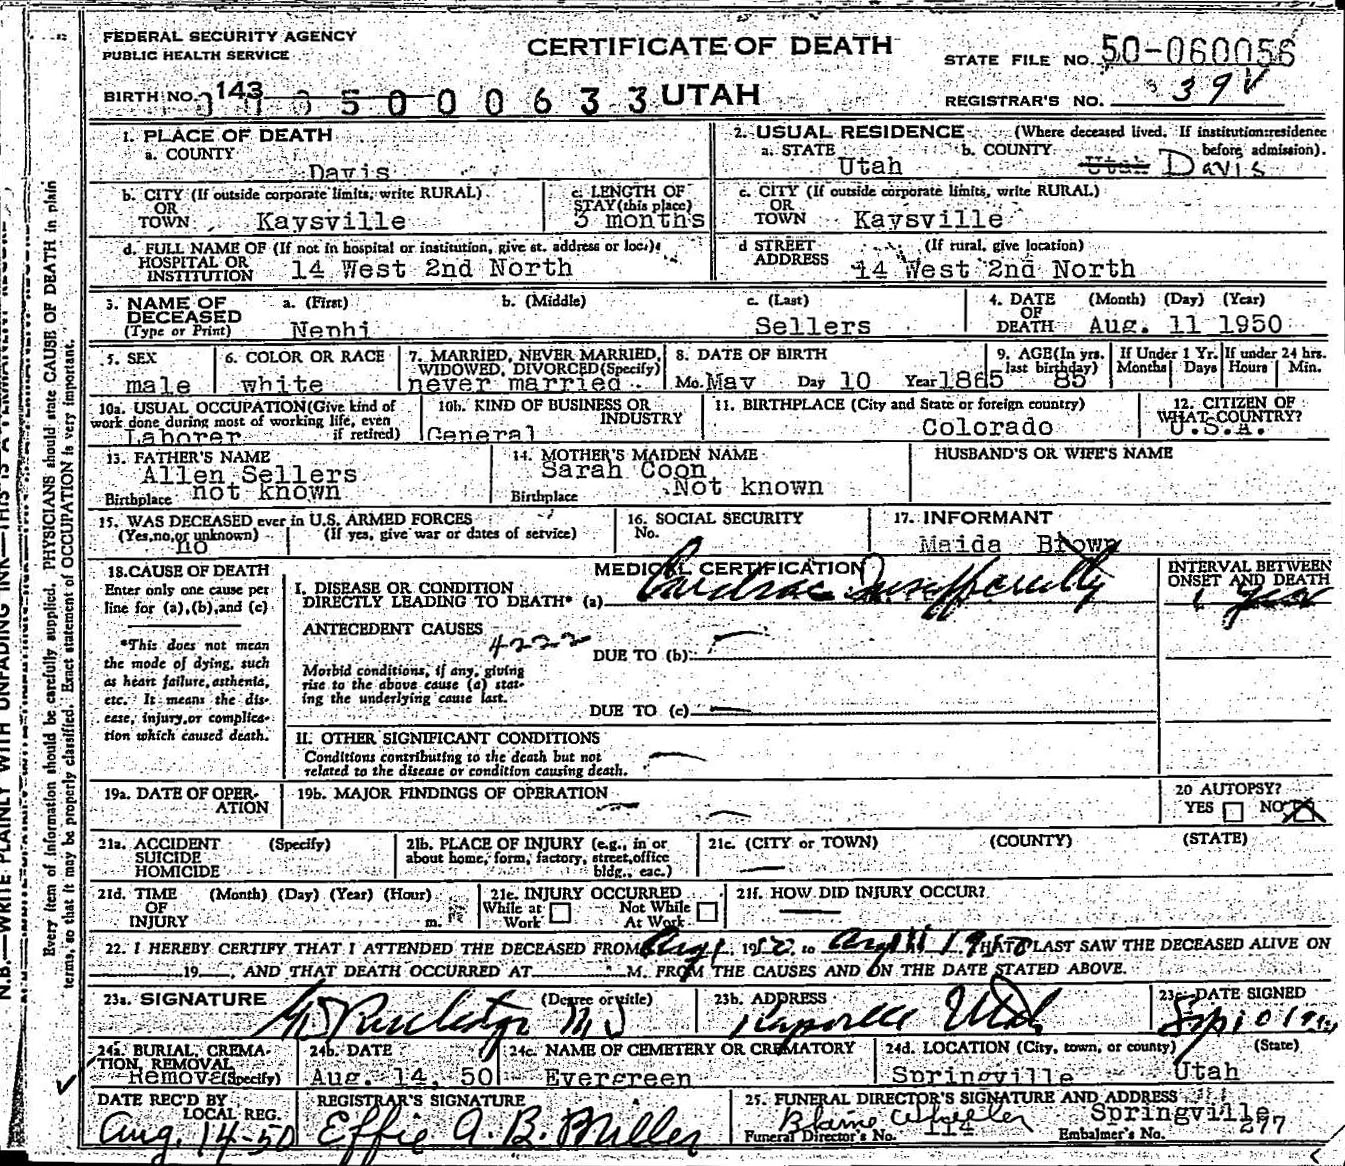 FEDERAL SECURITY AGENCY
PUBLIC HEALTH SERVICE
CERTIFICATE OF DEATH
STATE FILE NO. 50-060056
BIRTH NO. 143 500 0 0 6 3 3 UTAH
REGISTRAR'S NO. 39
1. PLACE OF DEATH
a. COUNTY
Davis
2. USUAL RESIDENCE (Where deceased lived. If institution: residence before admission).
a. STATE Utah b. COUNTY Utah Davis
b. CITY (If outside corporate limits, write RURAL)
OR
TOWN Kaysville
c. LENGTH OF
STAY (this place)
3 months
c. CITY (If outside corporate limits, write RURAL)
OR
TOWN Kaysville
d. FULL NAME OF (If not in hospital or institution, give st. address or loc.)
HOSPITAL OR
INSTITUTION 14 West 2nd North
d STREET (If rural, give location)
ADDRESS 14 West 2nd North
3. NAME OF
DECEASED
(Type or Print)
a. (First) b. (Middle) c. (Last)
Nephi Sellers
4. DATE (Month) (Day) (Year)
OF
DEATH Aug. 11 1950
5. SEX
male
6. COLOR OR RACE
white
7. MARRIED, NEVER MARRIED,
WIDOWED, DIVORCED (Specify)
never married
8. DATE OF BIRTH
Mo. May Day 10 Year 1865
9. AGE (In yrs.
last birthday)
85
If Under 1 Yr.
Months Days
If under 24 hrs.
Hours Min.
10a. USUAL OCCUPATION (Give kind of
work done during most of working life, even
if retired)
Laborer
10b. KIND OF BUSINESS OR
INDUSTRY
General
11. BIRTHPLACE (City and State or foreign country)
Colorado
12. CITIZEN OF
WHAT COUNTRY?
U.S.A.
13. FATHER'S NAME
Allen Sellers
Birthplace not known
14. MOTHER'S MAIDEN NAME
Sarah Coon
Birthplace Not known
HUSBAND'S OR WIFE'S NAME
15. WAS DECEASED ever in U.S. ARMED FORCES
(Yes, no, or unknown) (If yes, give war or dates of service)
no
16. SOCIAL SECURITY
No.
17. INFORMANT
Maida Brown
18. CAUSE OF DEATH
Enter only one cause per
line for (a), (b), and (c)
*This does not mean
the mode of dying, such
as heart failure, asthenia,
etc. It means the dis-
ease, injury, or complica-
tion which caused death.
MEDICAL CERTIFICATION
I. DISEASE OR CONDITION
DIRECTLY LEADING TO DEATH* (a) Cardiac Insufficiency
ANTECEDENT CAUSES 4222
DUE TO (b)
Morbid conditions, if any, giving
rise to the above cause (a) stat-
ing the underlying cause last.
DUE TO (c)
INTERVAL BETWEEN
ONSET AND DEATH
1 year
II. OTHER SIGNIFICANT CONDITIONS
Conditions contributing to the death but not
related to the disease or condition causing death.
19a. DATE OF OPER-
ATION
19b. MAJOR FINDINGS OF OPERATION
20 AUTOPSY?
YES NO X
21a. ACCIDENT (Specify)
SUICIDE
HOMICIDE
21b. PLACE OF INJURY (e.g., in or
about home, form, factory, street, office
bldg., eac.)
21c. (CITY or TOWN) (COUNTY) (STATE)
21d. TIME (Month) (Day) (Year) (Hour)
OF
INJURY m.
21e. INJURY OCCURRED
While at Work
Not While At Work
21f. HOW DID INJURY OCCUR?
22. I HEREBY CERTIFY THAT I ATTENDED THE DECEASED FROM Aug 1, 1950 to Aug 11 1950 THAT I LAST SAW THE DECEASED ALIVE ON
19 , AND THAT DEATH OCCURRED AT M. FROM THE CAUSES AND ON THE DATE STATED ABOVE.
23a. SIGNATURE (Degree or title)
Rutledge M D
23b. ADDRESS
Kaysville Utah
23c. DATE SIGNED
24a. BURIAL, CREMA-
TION, REMOVAL
(Specify)
Removal
24b. DATE
Aug. 14, 50
24c. NAME OF CEMETERY OR CREMATORY
Evergreen
24d. LOCATION (City, town, or county) (State)
Springville Utah
DATE REC'D BY
LOCAL REG.
Aug. 14-50
REGISTRAR'S SIGNATURE
Effie A. B. Miller
25. FUNERAL DIRECTOR'S SIGNATURE AND ADDRESS
Blaine Wheeler Springville
Funeral Director's No. 114 Embalmer's No. 277
N.B.—WRITE PLAINLY WITH UNFADING INK—THIS IS A PERMANENT RECORD
Every item of information should be carefully supplied. PHYSICIANS should state CAUSE OF DEATH in plain
terms, so that it may be properly classified. Exact statement of OCCUPATION is very important.